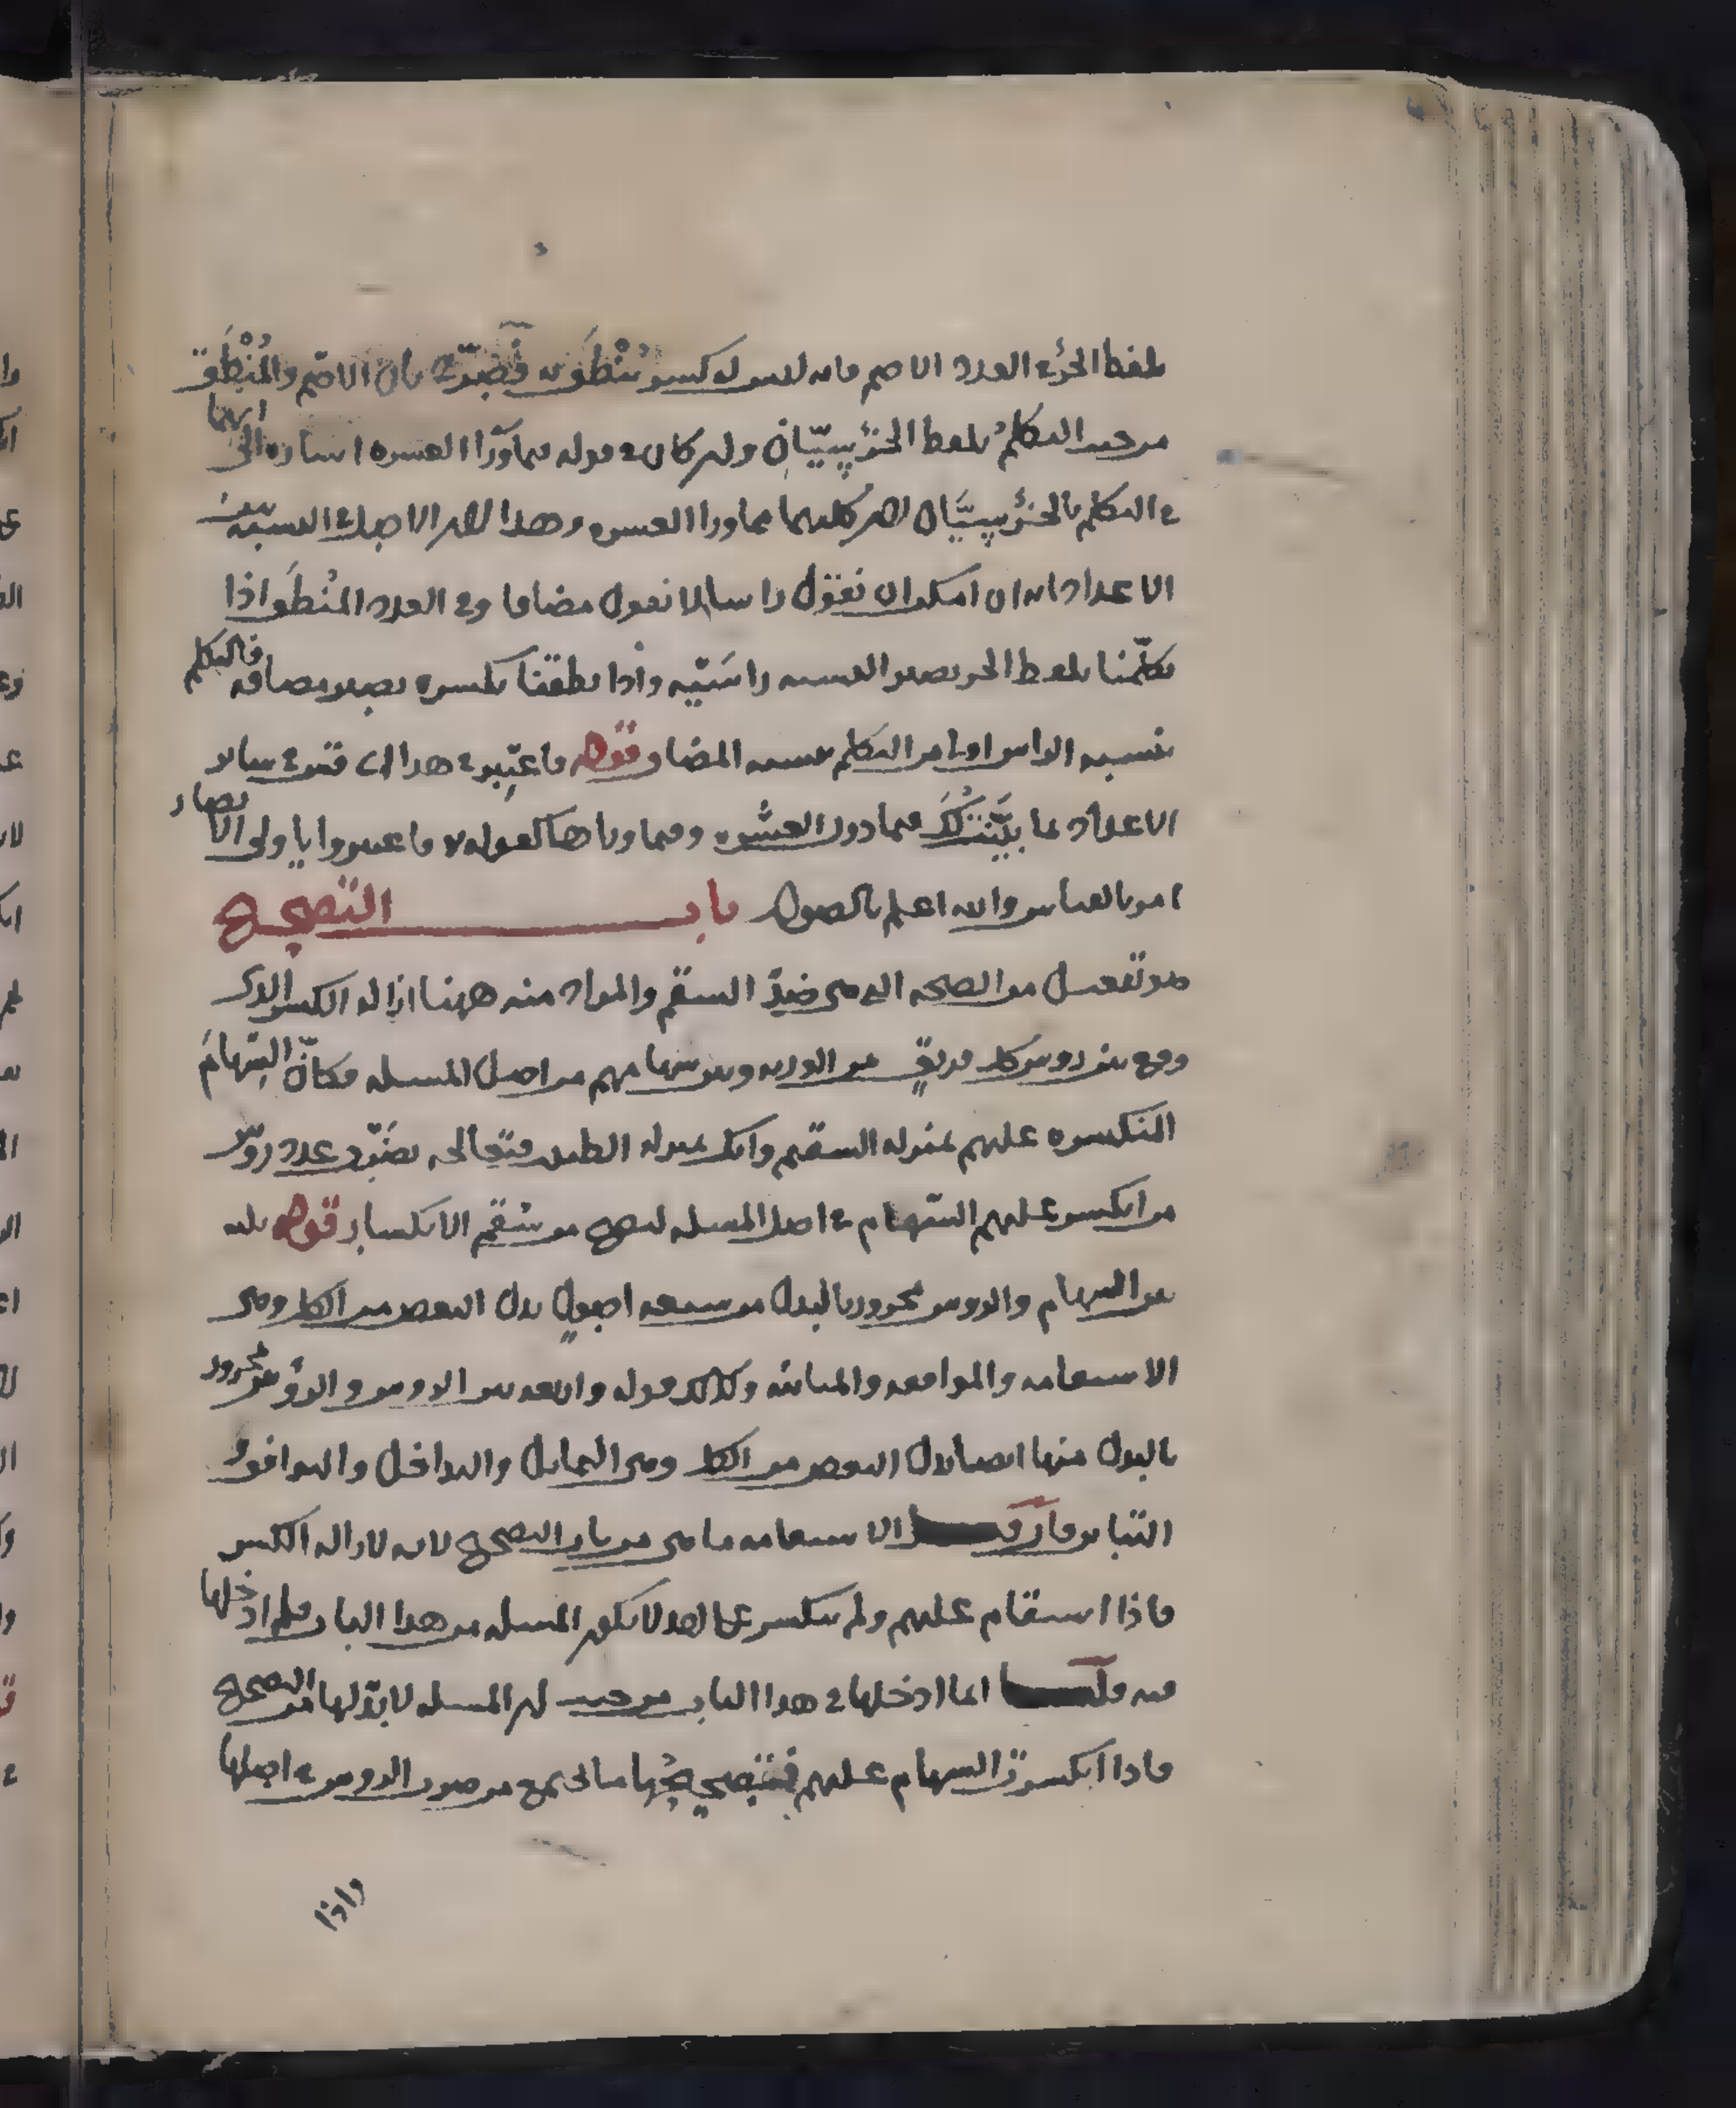 بلفظ الجزء العدد الاصم فانه ليس له كسر مُنْطَق به فصرّح بان الاصم والمُنْطَق
من حيث التكلم بلفظ الجزء سِيّانِ ولهن كان في قوله فيما وَرَآ العشره اشاره الى انهما
في التكلم بالجزء سِيَّان لان كليهما مما ورا العشره وهذا لان الاصل في النسبه بين
الاعداد انه ان امكن ان نقول راسا لا نقول مضافا وفي العدد المُنْطَق اذا
تكلّمنا بلفظ الجزء يصير النسبه راسَيّه واذا نطقنا بكسره يصير مضافه فالتكلم
بنسبه الراس اولى من التكلم بنسبه المضاف قوله فاعتبر في هذا اى قس في ساير
الاعداد بما بَيَّنْتُ لَكَ فيما دون العشره وفيما وراها كقوله فاعتبروا يا اولى الابصار
امر بالقياس والله اعلم بالصواب باب التصحيح
هو تفعيل من الصحه التى هى ضدّ السقم والمراد منه ههنا ازاله الكسر الذى
وقع بين روس كل فريقٍ من الورثه وبين سهامهم من اصل المسله فكانّ السِّهامَ
المنكسره عليهم بمنزله السقيم وانك بمنزله الطبيب فتعالجه بضَرْب عدد روس
من انكسر عليهم السّهام في اصل المسله ليصح من سُقم الانكسار قوله ثلثه
بين السهام والروس مجرور بالبدل من سبعه اصولٍ بدل البعض من الكل وهى
الاستقامه والموافقه والمباينه وكذلك قوله واربعه بين الروس والرؤس مجرور
بالبدل منها ايضا بدل البعض من الكل وهى التماثل والتداخل والتوافق و
التباين فان قلت الاستقامه ما هى من باب التصحيح لانه لازاله الكسر
فاذا استقام عليهم ولم ينكسر على احد لا يكون المسله من هذا الباب فلم ادخلها
فيه قلت انما ادخلها في هذا الباب من حيث ان المسله لا بدّ لها من التصحيح
فاذا انكسرت السهام عليهم فتصحيحُها مما يجتمع من ضرب الروس في اصلها
واذا